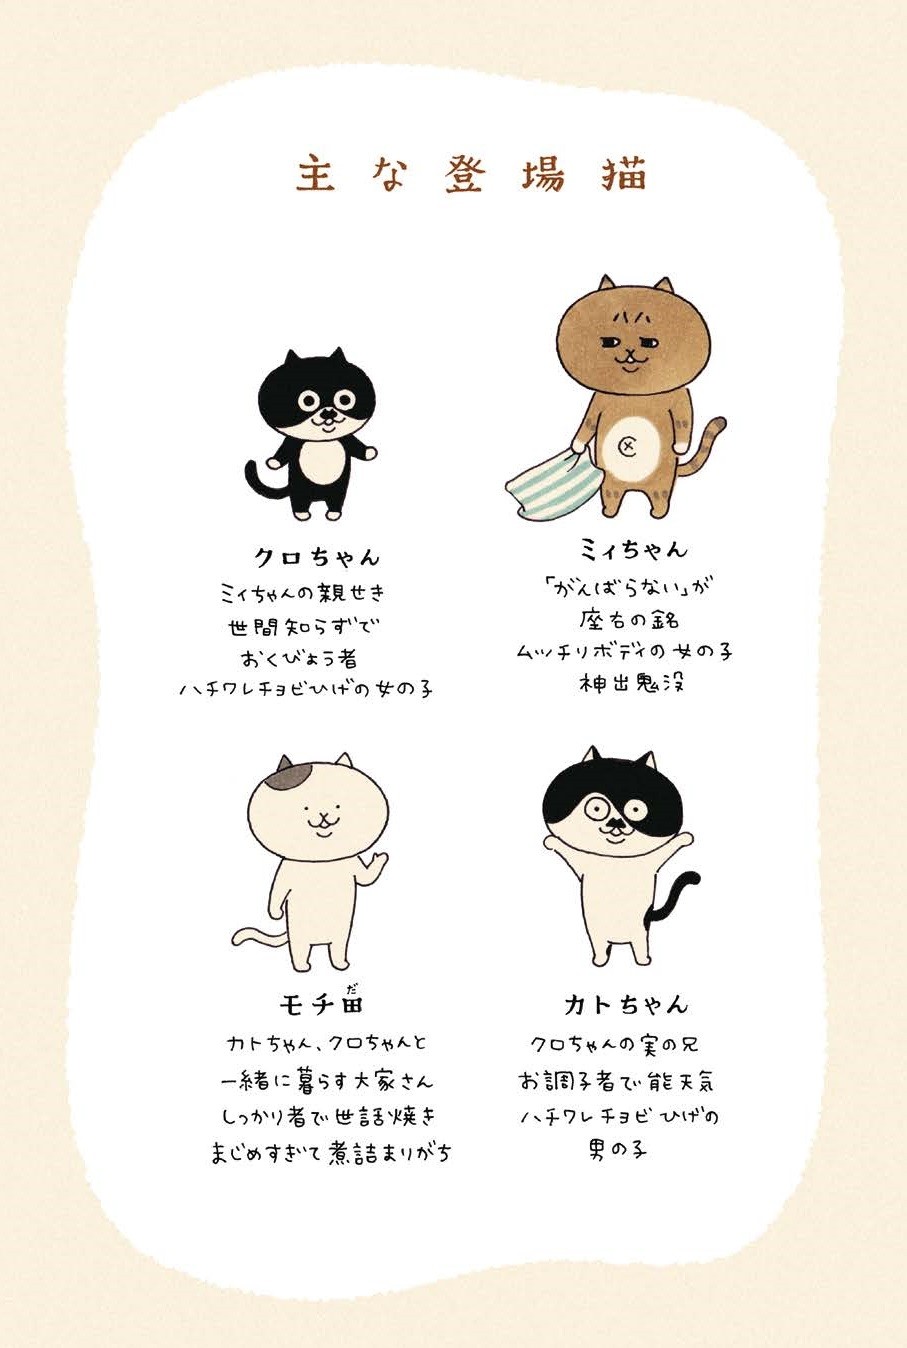 主な登場猫
クロちゃん
ミィちゃんの親せき
世間知らずで
おくびょう者
ハチワレチョビひげの女の子
ミィちゃん
「がんばらない」が
座右の銘
ムッチリボディの女の子
神出鬼没
モチ田
だ
カトちゃん、クロちゃんと
一緒に暮らす大家さん
しっかり者で世話焼き
まじめすぎて煮詰まりがち
カトちゃん
クロちゃんの実の兄
お調子者で能天気
ハチワレチョビひげの
男の子